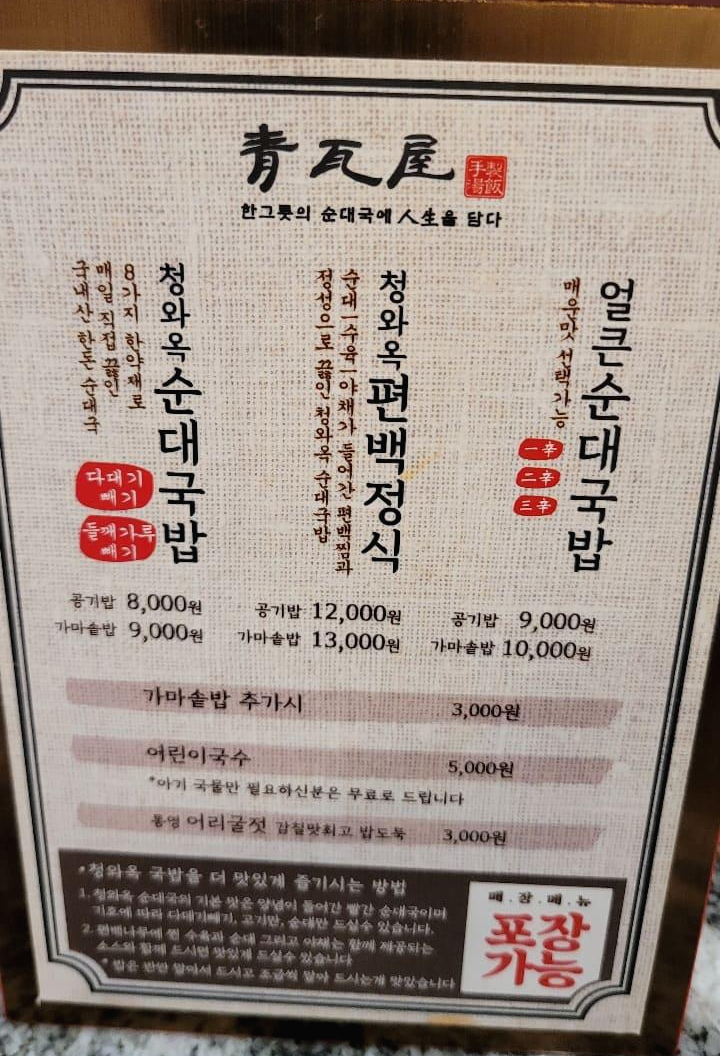 青瓦屋
手製
湯飯
한그릇의 순대국에 人生을 담다
청와옥 순대국밥
8가지 한약재로
매일 직접 끓인
국내산 한돈 순대국
다대기
빼기
들깨가루
빼기
공기밥 8,000원
가마솥밥 9,000원
청와옥 편백정식
순대-수육-야채가 들어간 편백찜과
정성으로 끓인 청와옥 순대국밥
공기밥 12,000원
가마솥밥 13,000원
얼큰순대국밥
매운맛 선택가능
一辛
二辛
三辛
공기밥 9,000원
가마솥밥 10,000원
가마솥밥 추가시 3,000원
어린이국수 5,000원
*아기 국물만 필요하신분은 무료로 드립니다
통영 어리굴젓 감칠맛최고 밥도둑 3,000원
•청와옥 국밥을 더 맛있게 즐기시는 방법
1. 청와옥 순대국의 기본 맛은 양념이 들어간 빨간 순대국이며
기호에 따라 다대기빼기, 고기만, 순대만 드실수 있습니다.
2. 편백나무에 찐 수육과 순대 그리고 야채는 함께 제공되는
소스와 함께 드시면 맛있게 드실수 있습니다
* 밥은 반만 말아서 드시고 조금씩 말아 드시는게 맛있습니다
메뉴
포장
가능